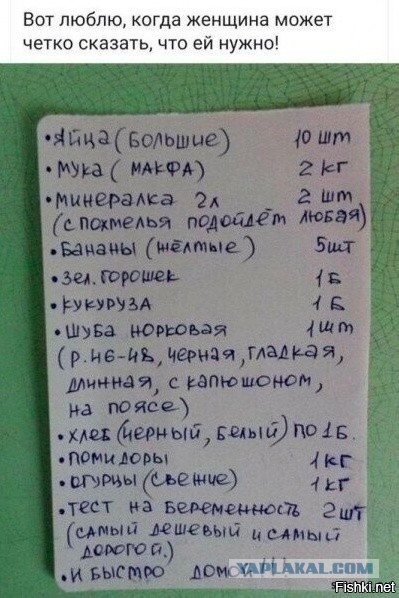 Вот люблю, когда женщина может
четко сказать, что ей нужно!
• Яйца (большие) 10 шт
• мука (МАКФА) 2 кг
• минералка 2л 2 шт
(с похмелья подойдёт любая)
• Бананы (жёлтые) 5шт
• зел. горошек 1 Б
• кукуруза 1 Б
• шуба норковая 1 шт
(р. 46-48, черная, гладкая,
длинная, с капюшоном,
на поясе)
• хлеб (черный, белый) по 1б.
• помидоры 1 кг
• огурцы (свежие) 1 кг
• тест на беременность 2 шт
(самый дешевый и самый
дорогой.)
• и быстро домой!!!
YAPLAKAL.COM
Fishki.net